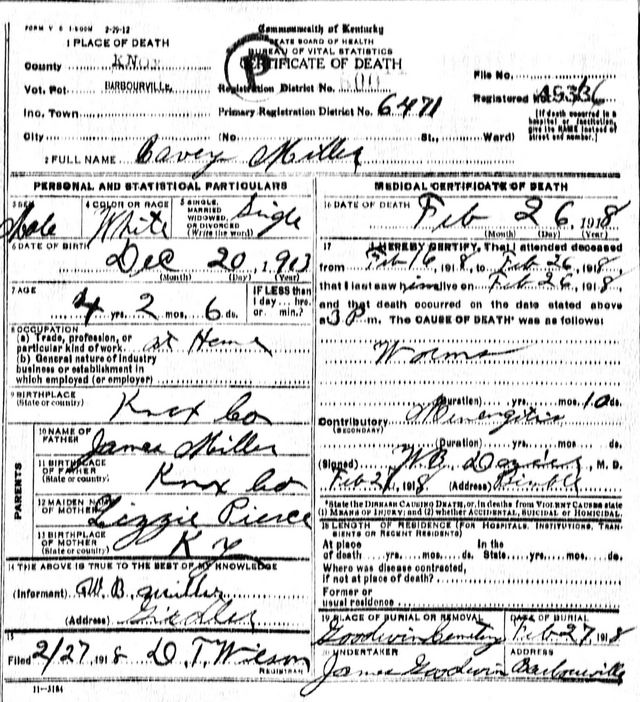 FORM V S 1-500M 2-29-12
Commonwealth of Kentucky
STATE BOARD OF HEALTH
BUREAU OF VITAL STATISTICS
CERTIFICATE OF DEATH
P
1 PLACE OF DEATH
County KNOX
Vot. Pct BARBOURVILLE
Inc. Town
City
Registration District No.
Primary Registration District No. 6471
(No St., Ward)
File No.
Registered No.
[If death occurred in a hospital or institution, give its NAME instead of street and number.]
2 FULL NAME Cavey Miller
PERSONAL AND STATISTICAL PARTICULARS
3 SEX Male
4 COLOR OR RACE White
5 SINGLE, MARRIED WIDOWED, OR DIVORCED (Write the word) Single
6 DATE OF BIRTH Dec 20, 1913
(Month) (Day) (Year)
7 AGE 4 yrs. 2 mos. 6 ds.
IF LESS than 1 day... hrs. or min.?
8 OCCUPATION
(a) Trade, profession, or particular kind of work at Home
(b) General nature of industry business or establishment in which employed (or employer)
9 BIRTHPLACE
(State or country) Knox Co
PARENTS
10 NAME OF FATHER James Miller
11 BIRTHPLACE OF FATHER (State or country) Knox Co
12 MAIDEN NAME OF MOTHER Lizzie Pierce
13 BIRTHPLACE OF MOTHER (State or country) Ky
14 THE ABOVE IS TRUE TO THE BEST OF MY KNOWLEDGE
(Informant) W. B. Miller
(Address) Girdler
15
Filed 2/27 1918 D. T. Wilson
REGISTRAR
11-3184
MEDICAL CERTIFICATE OF DEATH
16 DATE OF DEATH Feb 26, 1918
(Month) (Day) (Year)
17 I HEREBY CERTIFY, That I attended deceased
from Feb 16 1918, to Feb 26, 1918
that I last saw him alive on Feb 26, 1918,
and that death occurred on the date stated above
at 3 P. m. The CAUSE OF DEATH* was as follows:
Worms
(Duration) yrs. mos. 10 ds.
Contributory Menengitis
(SECONDARY)
(Duration) yrs. mos. ds.
(Signed) W. B. M. D.
1918 (Address)
*State the DISEASE CAUSING DEATH, or, in deaths from VIOLENT CAUSES state (1) MEANS OF INJURY; and (2) whether ACCIDENTAL, SUICIDAL OR HOMICIDAL.
18 LENGTH OF RESIDENCE (FOR HOSPITALS, INSTITUTIONS, TRANSIENTS OR RECENT RESIDENTS)
At place of death yrs. mos. ds. In the State yrs. mos. ds.
Where was disease contracted, if not at place of death?
Former or usual residence
19 PLACE OF BURIAL OR REMOVAL Goodwin Cemetery
DATE OF BURIAL Feb 27, 1918
20 UNDERTAKER James Goodwin
ADDRESS Barbourville